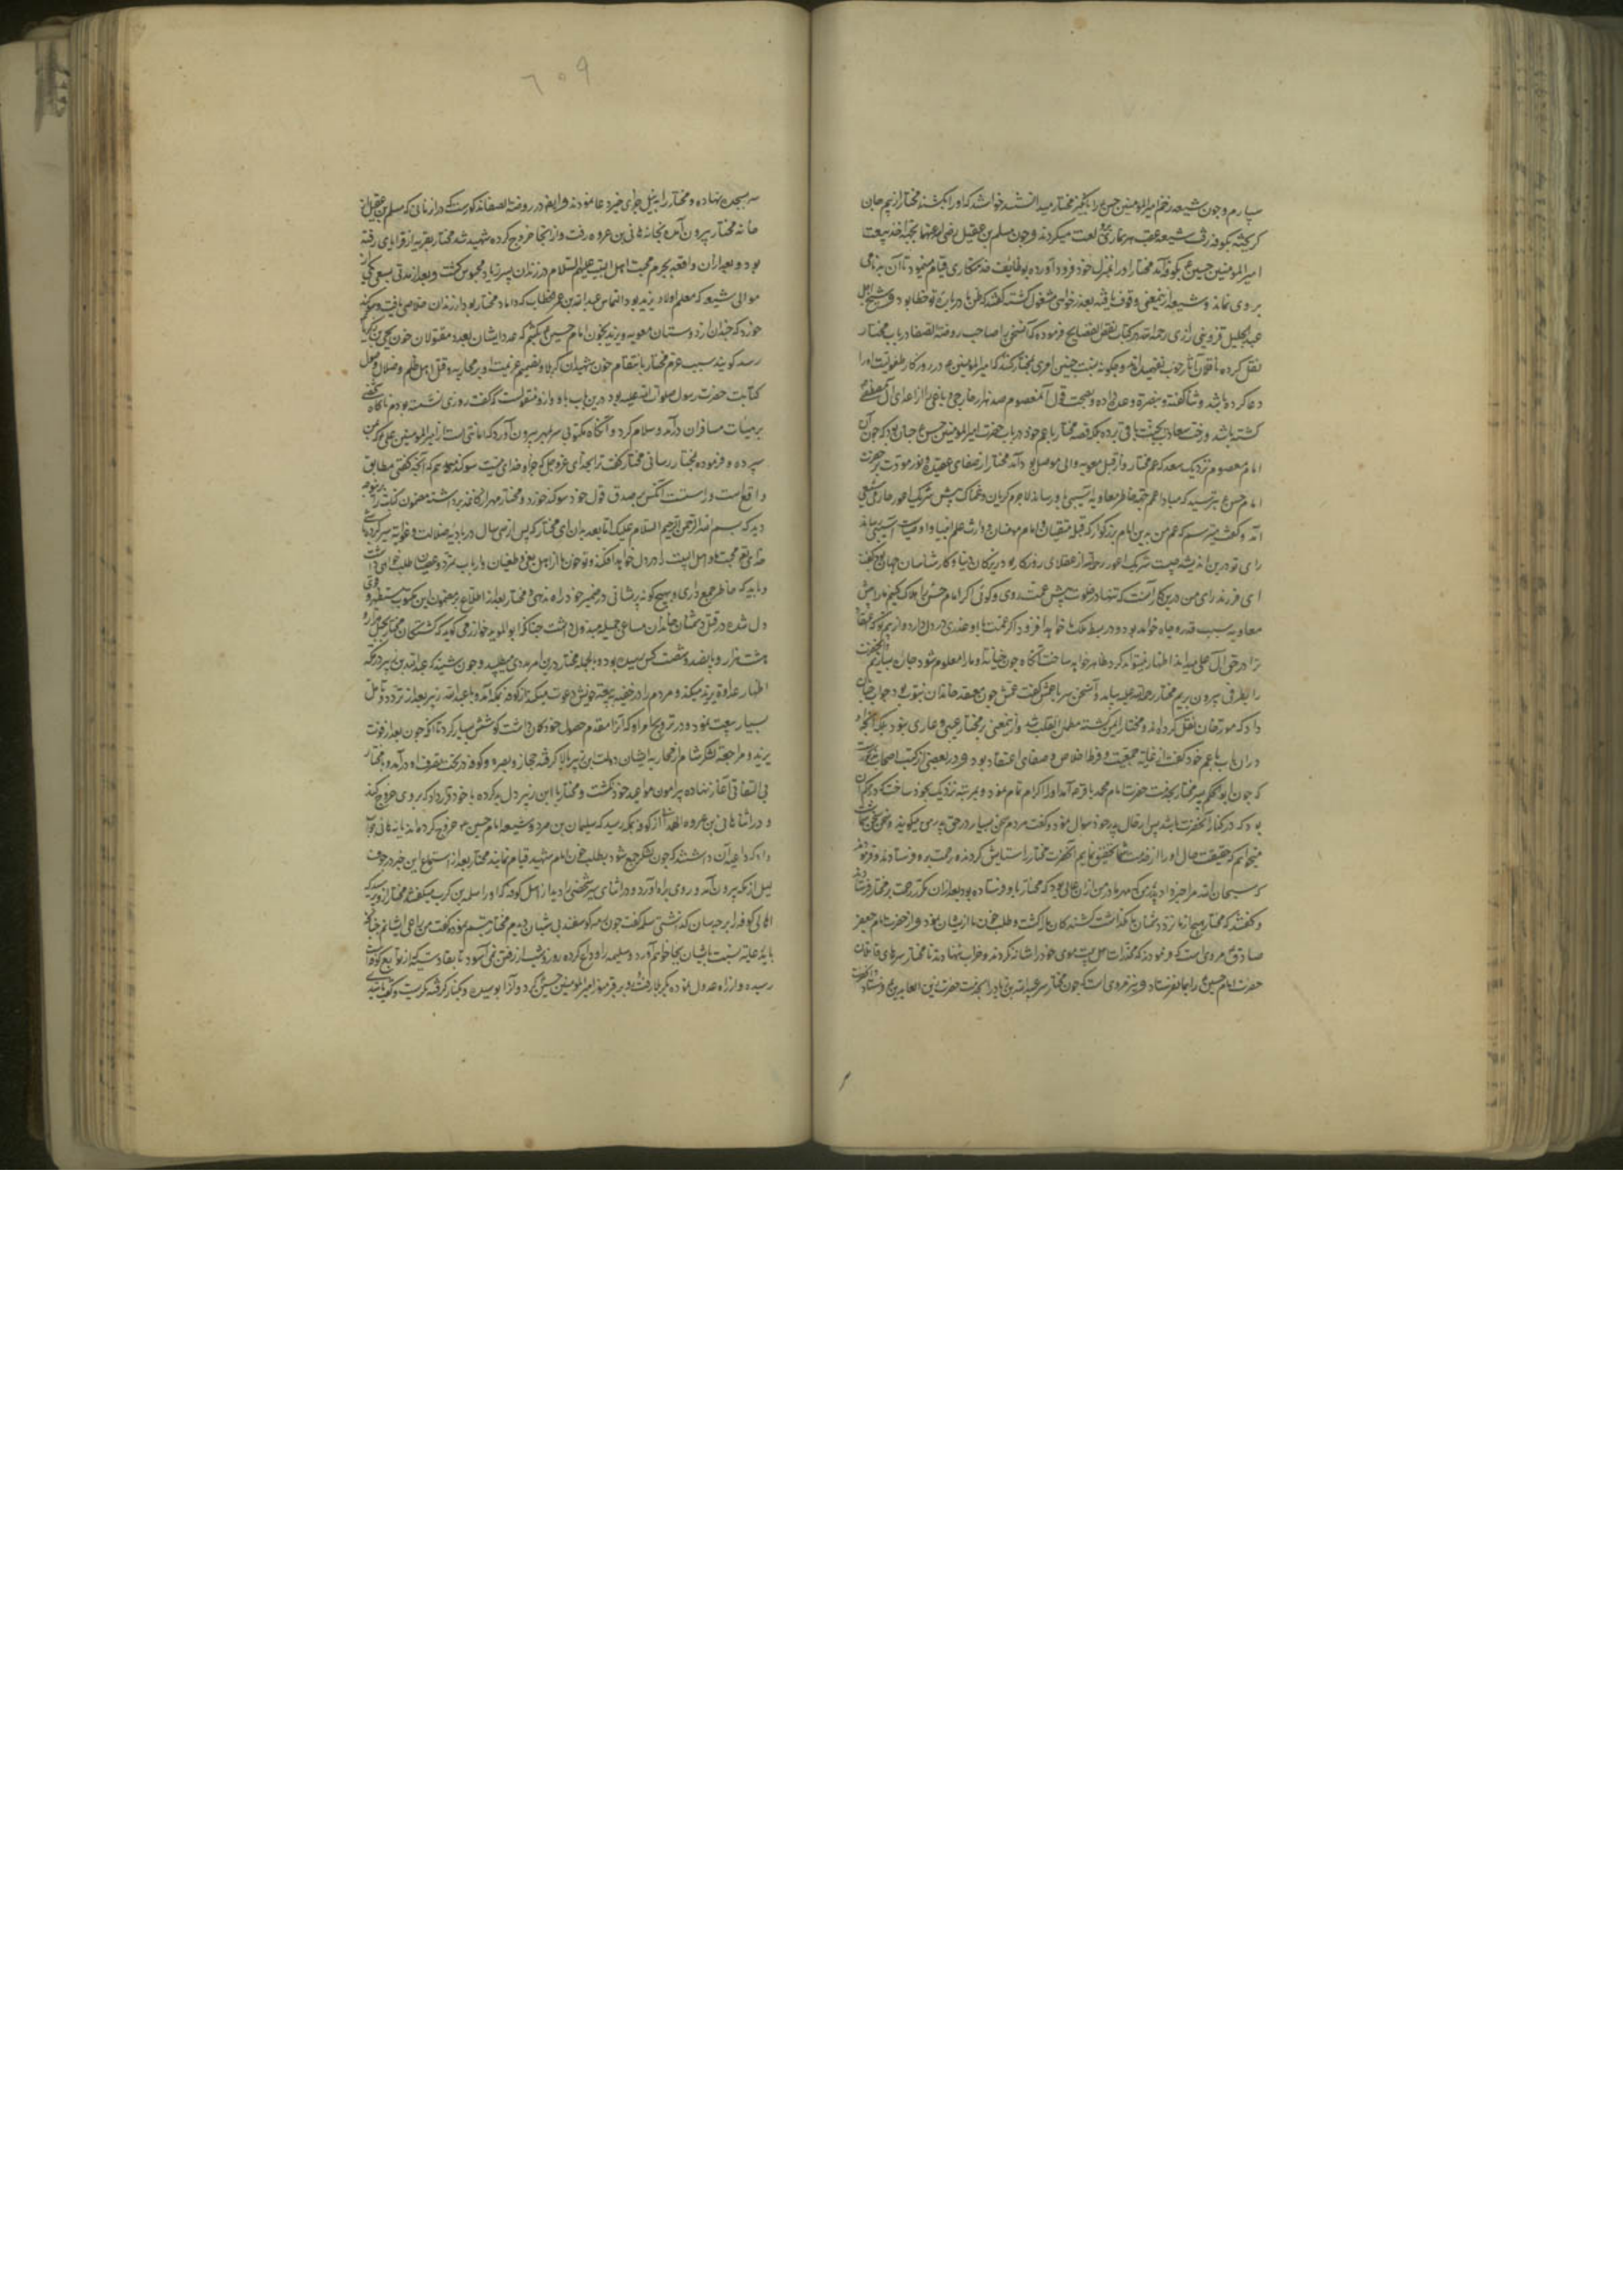 سپارم و چون شیعه زخم امیرالمؤمنین حسن را بانگیز مختار میدانستند خواستند که او را بکشند مختار از بیم جان
کریخته بکوفه رفت شیعه عقب هر نمازی برو لعنت میکردند و چون مسلم بن عقیل رضی الله عنهما بجهة اخذ بیعت
امیرالمؤمنین حسین ع بکوفه آمد مختار او را بمنزل خود فرود آورده بوظایف خدمتکاری قیام مینمود تا آن بدنامی
بروی نماند و شیعه از آنمعنی وقوف یافته بعذرخواهی مشغول کشتند گفتند که ظن ما درباره تو خطا بود و شیخ اجل
عبدالجلیل قزوینی رازی رحمه الله در کتاب نقض الفضایح فرموده که آنسخن را صاحب روضة الصفا در باب مختار
نقل کرده ناقلان آثار خوب نفهمیده‌اند و چکونه نسبت چنین امری بمختار کنند که امیرالمؤمنین ع در روزکار طفولیت او را
دعا کرده باشد و ثنا گفته و بنصرة وعده داده و بصحت قول آن معصوم صد هزار خارجی و باغی را از اعدای آل مصطفی
کشته باشد و رخت سعادت بجنت باقی برده بلکه قصه مختار با عم خود در باب حضرت امیرالمؤمنین حسن ع چنان بود که چون آن
امام معصوم نزدیک سعد که عم مختار و از قبل معویه والی موصل بود آمد مختار از صفای عقیده و نور مودت بر حضرت
امام حسن ع بترسید که مبادا عم بجهة خاطر معاویه آسیبی باو رساند لاجرم کریان و غمناک پیش شریک اعور حارثی شیعی
آمد و گفت میترسم که عم من بدین امام بزرکوار که قبله متقیان و امام مهدیان و وارث علم انبیا و اوصیاست آسیبی رساند
رای تو درین اندیشه چیست شریک اعور رحمه الله از عقلای روزکار بود و زیرکان دنیا و کارشناسان جهان بود گفت
ای فرزند رای من درین کار آنست که تنها در خلوت پیش عمت روی و کوئی اکر امام حسن را هلاک کنیم ما را پیش
معاویه سبب قدر و جاه خواهد بود و در بسط ملک ما خواهد افزود اکر عمت با او غدری در دل دارد و از بیم تو که اعتقاد
ترا در حق آل علی میداند اظهار نمیتواند کرد ظاهر خواهد ساخت آنکاه چون خیانت او ما را معلوم شود چاره سازیم و آنحضرت
را بطرفی بیرون بریم مختار رحمة الله علیه بیامد و آنسخن سر با عمش گفت عمش چون معتقد خاندان نبوت بود جواب چنان
داد که مورخان نقل کرده‌اند و مختار ایمن کشته مطمئن القلب شد و ازینمعنی بر مختار عیبی و عاری نبود بلکه آنچه او
دران باب با عم خود گفت از غایة محبت و فرط اخلاص و صفای اعتقاد بود و در بعضی از کتب اصحاب
که چون ابوالحکم پسر مختار بخدمت حضرت امام محمد باقر ع آمد او را اکرام تمام نمود و بمرتبه نزدیک بخود ساخت که در حکم آن
بود که در کنار آنحضرت باشد پس از حال پدر خود سوال نمود و گفت مردم سخن بسیار در حق پدر من میکویند و سخن سخن شماست
میخواهم که حقیقت حال او را از خدمت شما تحقیق نمایم آنحضرت مختار را ستایش کردند و رحمت برو فرستادند و فرمودند
که سبحان الله مرا خبر داد پدرم که مهر مادر من ازان مالی بود که مختار باو فرستاده بود بعد ازان مکرر رحمت بر مختار فرستادند
و گفتند که مختار هیچ از ما نزد دشمنان ما نکذاشت کشندکان ما را کشت و طلب خون ما ازیشان نمود و از حضرت امام جعفر
صادق ع مرویست که فرمودند که مخدرات اهل بیت موی خود را شانه نکردند و خضاب ننهادند تا مختار سرهای قاتلان
حضرت امام حسین ع را بما نفرستاد و نیز مرویست که چون مختار سر عبیدالله بن زیاد را بخدمت حضرت زین العابدین ع فرستاد آنحضرت
٦٠٩
سر بسجده نهاده و مختار را بنیل جزای خیر دعا نمودند و ایضا در روضة الصفا مذکورست که در ان زمانی که مسلم بن عقیل از
خانه مختار بیرون آمده بخانه هانی بن عروه رفت و از آنجا خروج کرده شهید شد مختار بقریه از قرایای رفته
بود و بعد ازان واقعه بجرم محبت اهل البیت علیهم السلام در زندان پسر زیاد محبوس کشت و بعد از مدتی بسعی یکی از
موالی شیعه که معلم اولاد یزید بود و التماس عبدالله بن عمر خطاب که داماد مختار بود از زندان خلاصی یافت و سوکند
خورد که چندان از دوستان معویه و یزید بخون امام حسین ع بکشم که عدد ایشان بعدد مقتولان خون یحیی بن زکریا
رسد کویند سبب عزم مختار بانتقام خون شهیدان کربلا و تصمیم عزیمت او بر محاربه و قتل اهل ظلم و ضلال وصول
کتابت حضرت رسول صلوات الله علیه بود درین باب باو و ازو منقولست که گفت روزی نشسته بودم ناکاه شخصی
بر هیئات مسافران درآمد و سلام کرد و آنکاه مکتوبی سر بمهر بیرون آورد که امانتی است از امیرالمؤمنین علی که بمن
سپرده و فرموده بمختار رسانی مختار گفت ترا بخدای عز و جل که جز او خدای نیست سوکند میدهم که آنچه گفتی مطابق
واقع است و راستست آنکس بر صدق قول خود سوکند خورد و مختار مهر از کاغذ برداشته مضمون کتابت را برینوجه
دید که بسم الله الرحمن الرحیم السلام علیک اما بعد بدان ای مختار که پس از سی سال در بادیه ضلالت و غوایت سیر کرده باشی
خدایتعالی محبت ما اهل البیت را در دل تو خواهد افکند و تو خون ما از اهل بغی و طغیان و ارباب تمرد و عصیان طلب خواهی داشت
و باید که خاطر جمع داری و بهیچ کونه پریشانی در ضمیر خود راه ندهی و مختار بعد از اطلاع بر مضمون این مکتوب مستظهر و قوی
دل شده در قتل دشمنان خاندان مساعی جمیله مبذول داشت چنانکه ابوالموید خوارزمی کوید که کشتکان مختار بچهل هزار و
هشت هزار و پانصد و شصت کس رسیده بود و بالجمله مختار درین امر مددی میطلبید و چون شنید که عبدالله بن زبیر در مکه
اظهار عداوة یزید میکند و مردم را در خفیه ببیعت خویش دعوت میکند از کوفه بمکه آمد و با عبدالله زبیر بعد از تردد و تامل
بسیار بیعت نمود و در ترویج امر او که آنرا مقدم حصول خود کمان داشت کوشش بسیار کرد تا آنکه چون بعد از فوت
یزید و مراجعت لشکر شام از محاربه ایشان دولت بن زبیر بالا کرفته حجاز و بصره و کوفه در تحت تصرف او درآمد و با مختار
بی التفاتی آغاز نهاده پیرامون مواعید خود نکشت و مختار با ابن زبیر دل بد کرده با خود قرار داد که بروی خروج کند
و در اثنا هانی بن عروه الهمدانی از کوفه بمکه رسید که سلیمان بن صرد و شیعه امام حسین ع خروج کرده‌اند یا نه هانی جواب
داد که داعیه آن داشتند که چون لشکر جمع شود بطلب خون امام شهید قیام نمایند مختار بعد از استماع این خبر در جوف
لیل از مکه بیرون آمد و روی براه آورد و در اثنای سیر شخصی را دید از اهل کوفه که او را سلمه بن کرب میکفتند مختار ازو پرسید که
اهالی کوفه را بر چه سان کذاشتی سلمه گفت چون رمه کوسفند بی شبان دیدم مختار تبسم نموده گفت من راعی ایشانم چنانکه
باید رعایت نسبت بایشان بجا خواهم آورد و سلمه را وداع کرده روز و شب از رفتن نمی آسود تا بقادسیه که از توابع کوفه است
رسیده و از راه عدول نموده بکربلا رفت و بر قبر منور امیرالمؤمنین حسین ع کرد و آنرا بوسیده و در کنار کرفته کریست و گفت یا سیدی